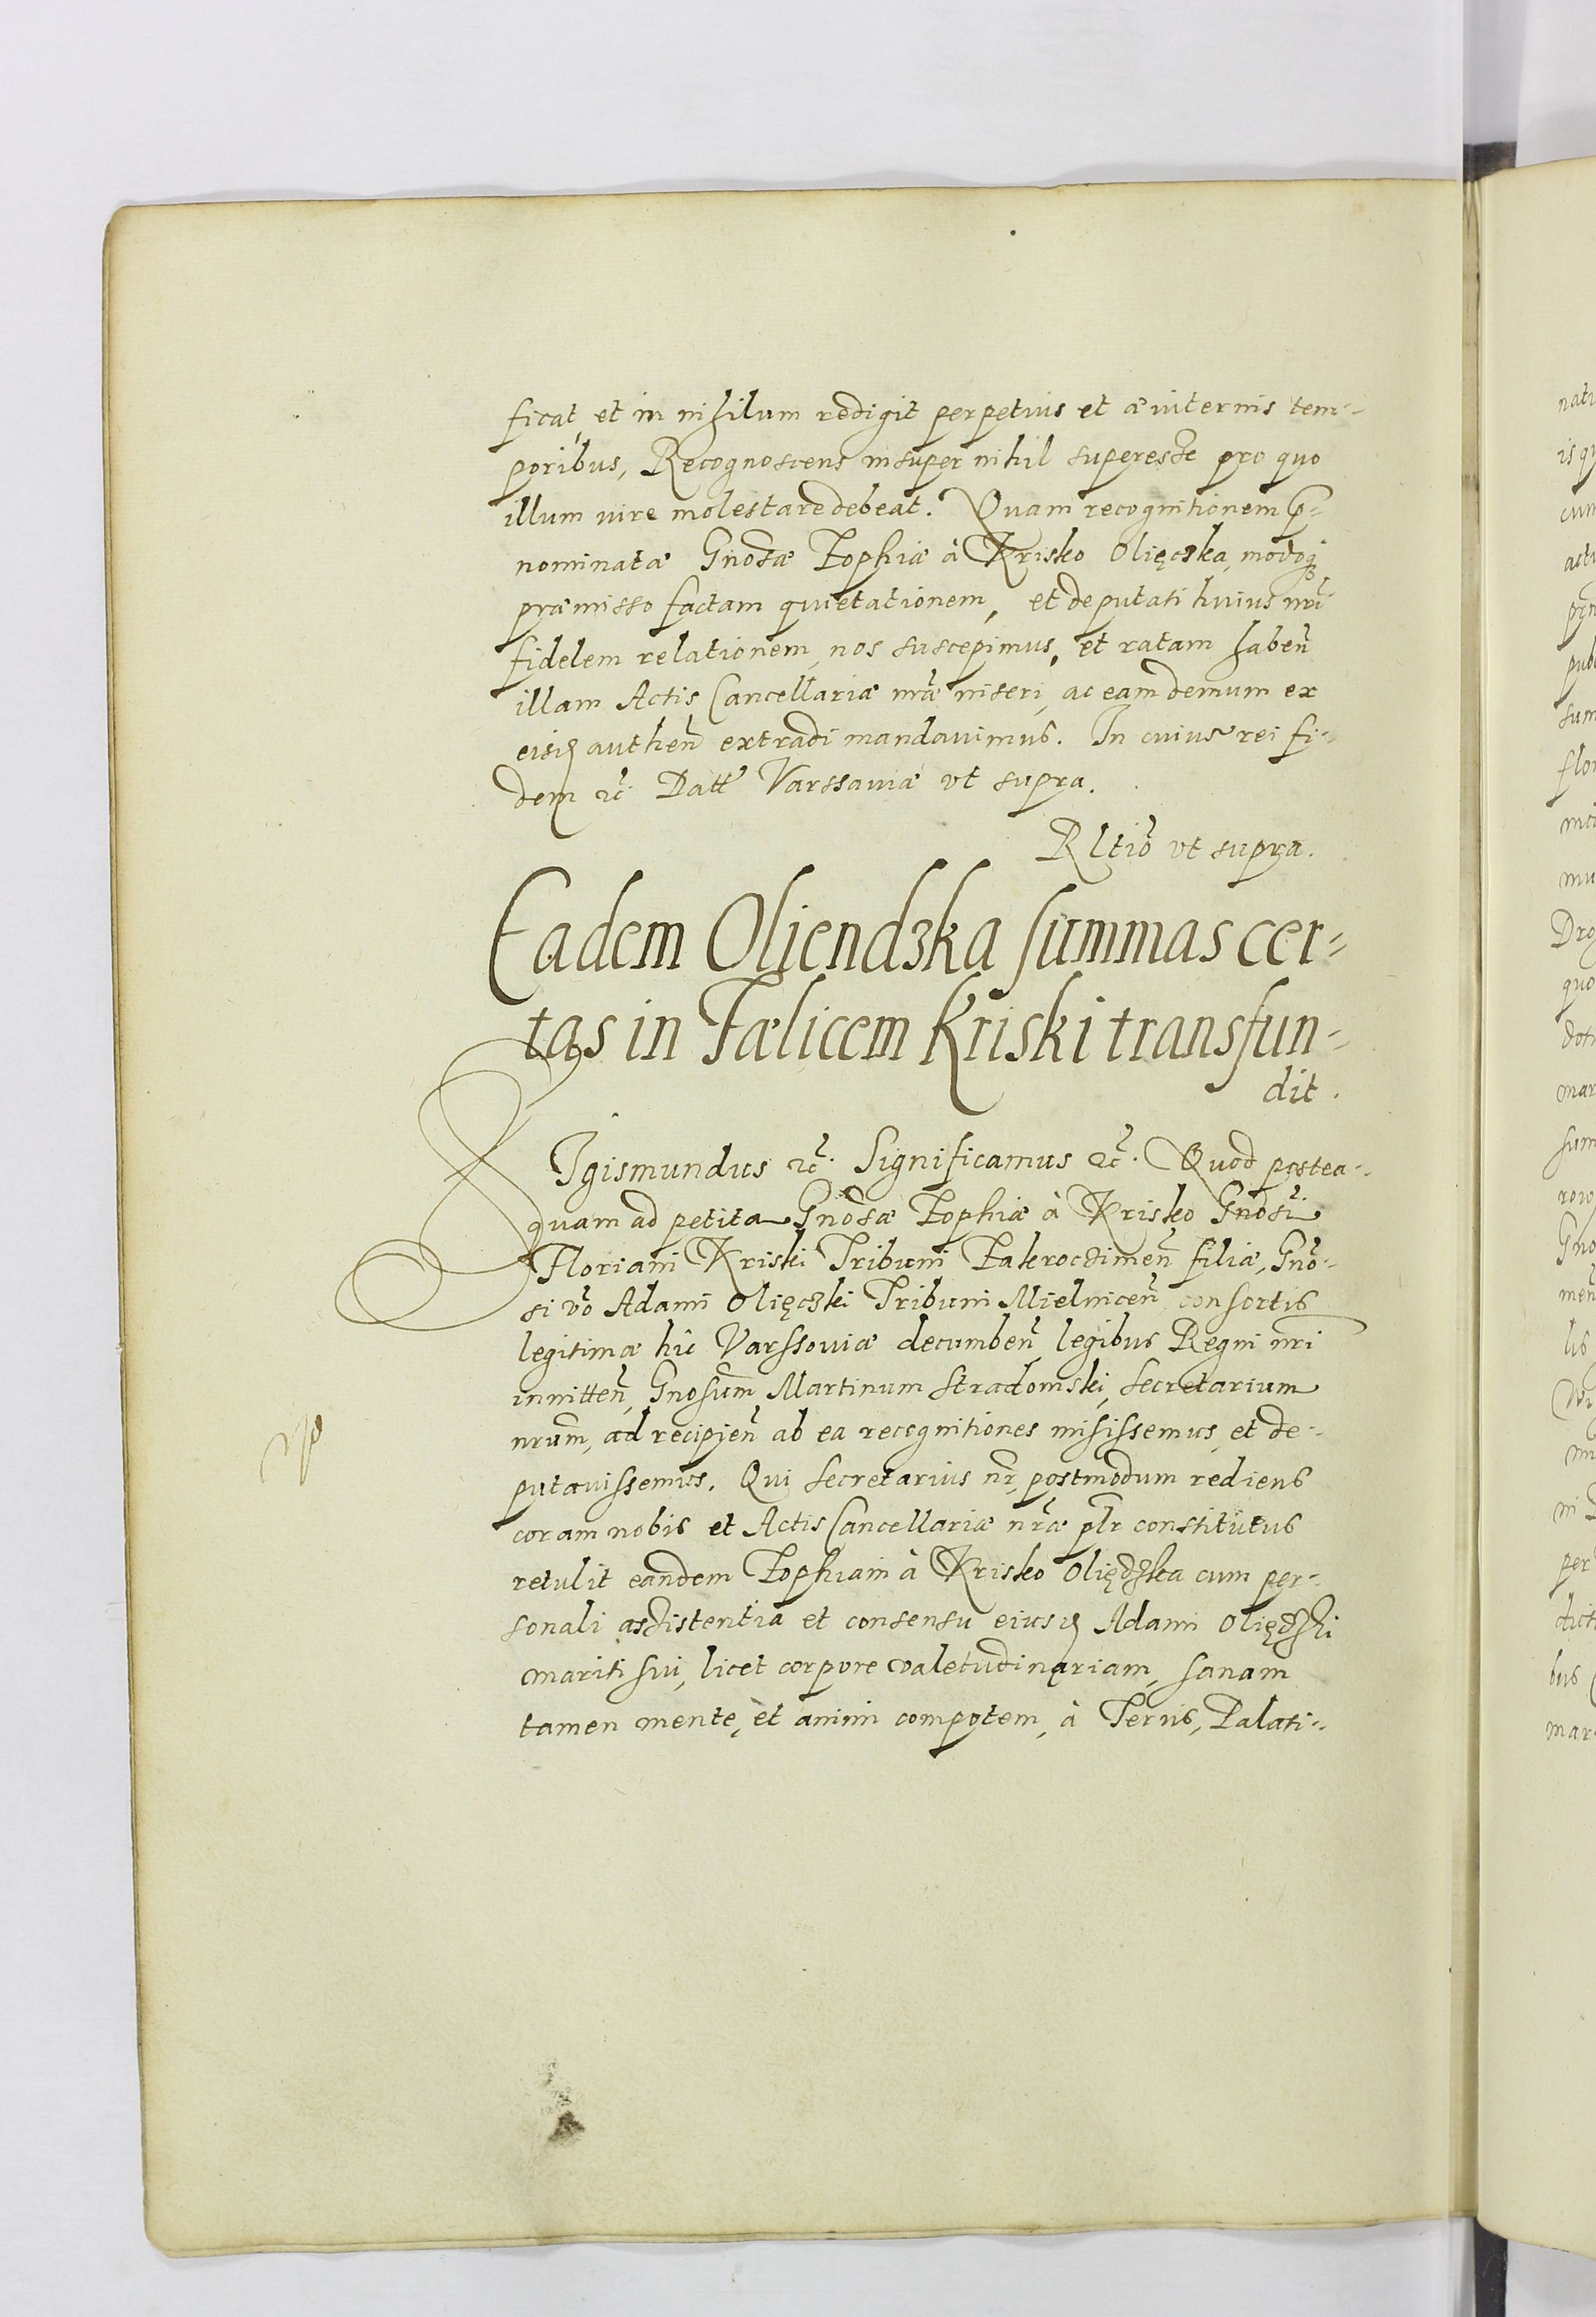 ficat, et in nihilum redigit perpetuis et æuiternis tem-
poribus, Recognoscens insuper nihil superesse pro quo
illum iure molestare debeat. Quam recognitionem p̃-
nominatæ Gnosæ Zophiæ à Krisko Olięczka, modoq̧
præmisso factam quietationem, et deputati huius nri
fidelem relationem, nos suscepimus, et ratam habeñ
illam Actis Cancellariæ nr̃æ inseri, ac eam demum ex
eisd autheñ extradi mandauimus. In cuius rei fi-
dem ꝛc̃. Datt Varssauiæ vt supra.
Rltio vt supra.
Eadem Oliendzka summas cer-
tas in Fælicem Kriski transfun-
dit.
SIgismundus ꝛc̃. Significamus ꝛc̃. Quod postea-
quam ad petita Gnosæ Zophiæ à Krisko Gnosi
Floriani Kriski Tribuni Zakroczimeñ filiæ, Gño-
si ṽo Adami Olięczki Tribuni Mielniceñ consortis
legitimæ hîc Varssouiæ decumbeñ, legibus Regni nri
innitteñ, Gnosum Martinum Stradomski, Secretarium
nrum, ad recipieñ ab ea recognitiones misissemus, et de-
putauissemus. Qui Secretarius nr̃, postmodum rediens
coram nobis et Actis Cancellariæ nr̃æ pl̃r constitutus
retulit eandem Zophiam à Krisko Oliędzka cum per-
sonali assistentia et consensu eiusd Adami Oliędzki
mariti sui, licet corpore valetudinariam, sanam
tamen mente, et animi compotem, à Terris, Palati-